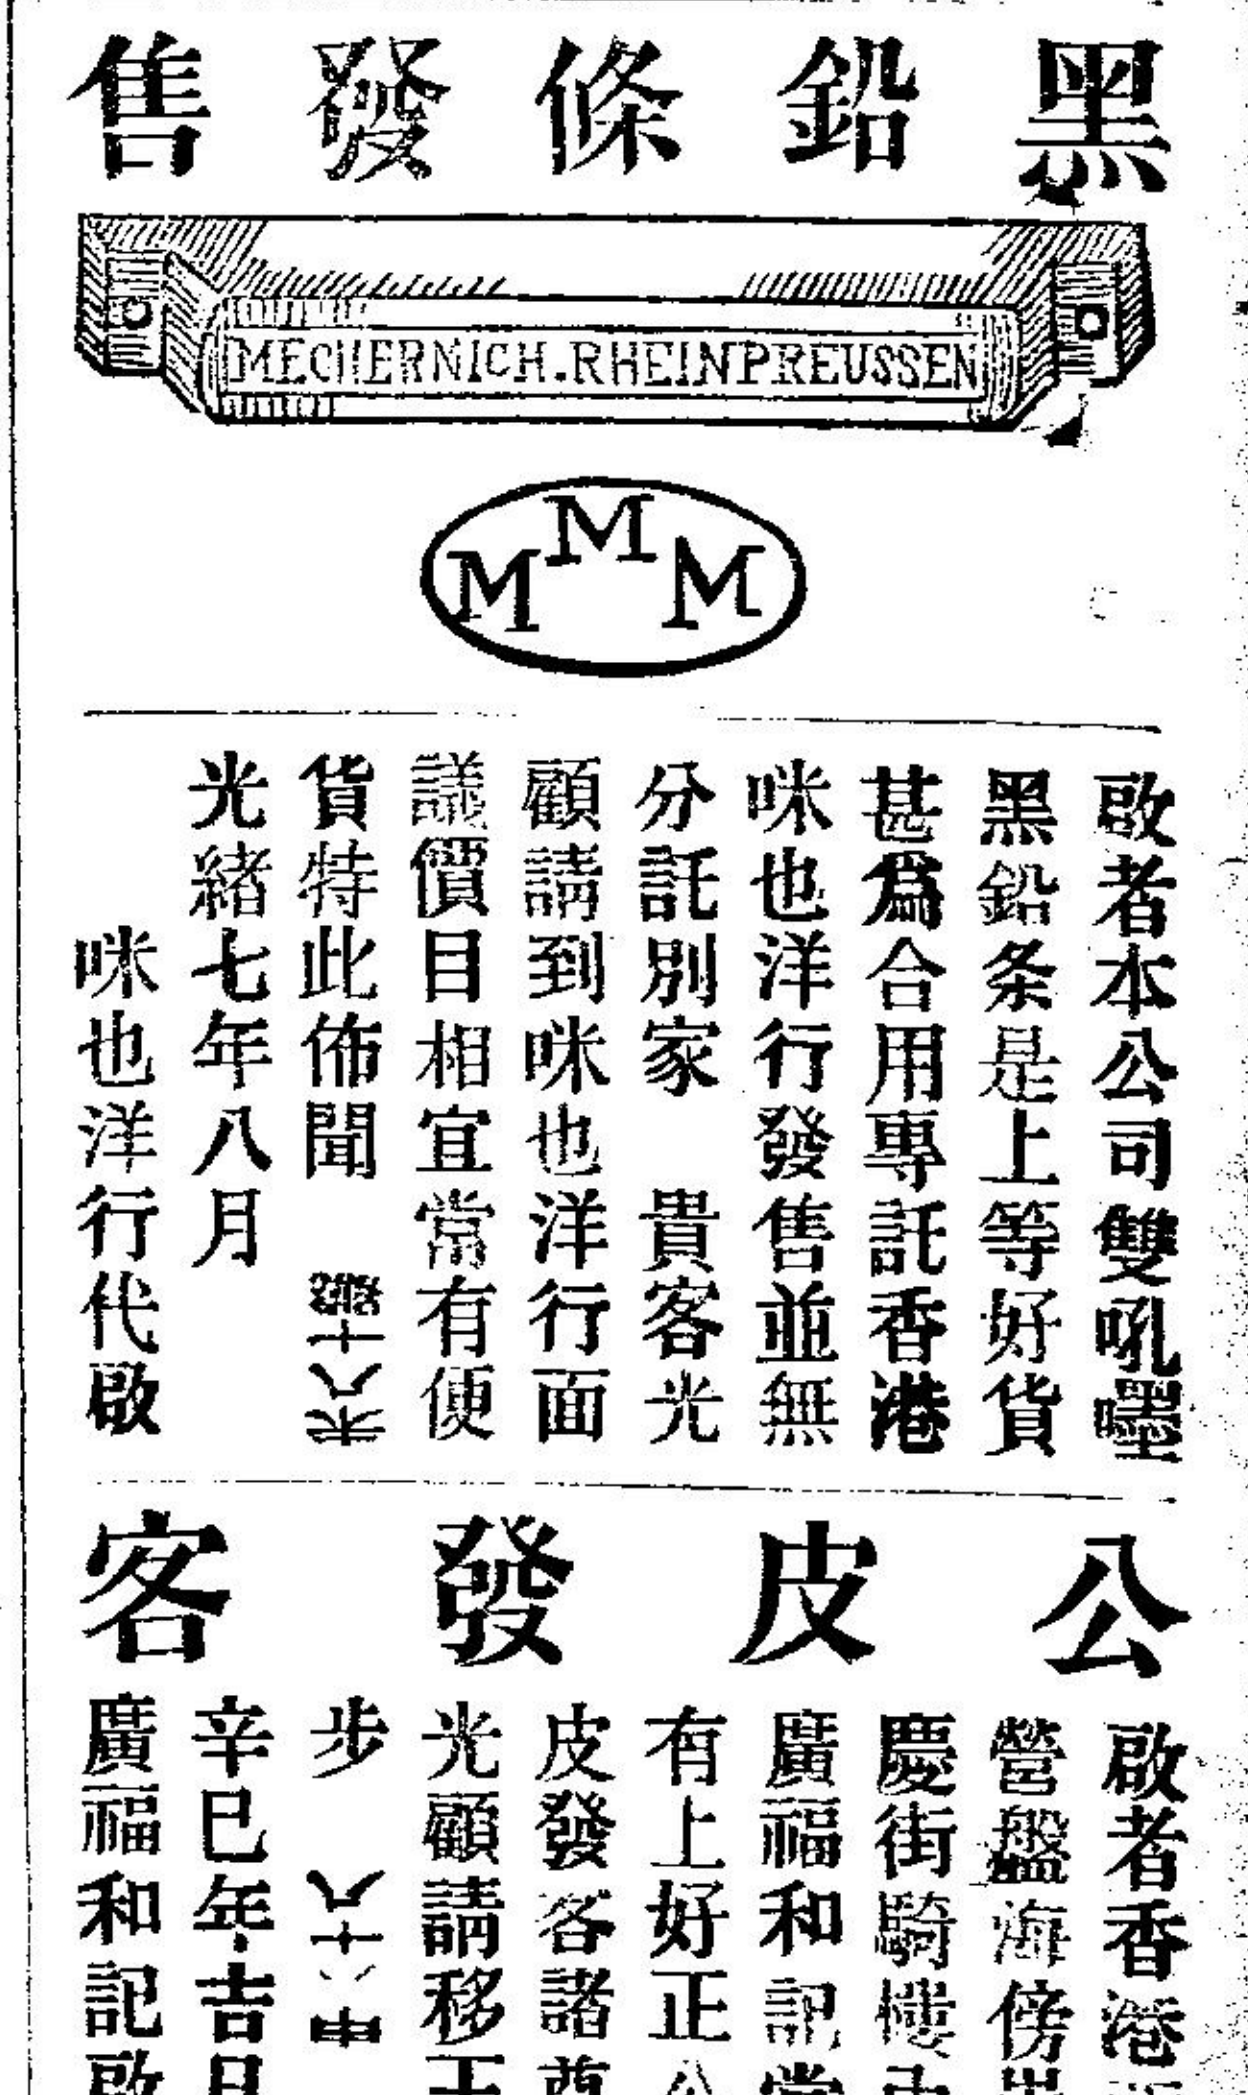 黑鉛條發售
MECHERNICH.RHEINPREUSSEN
M M M
啟者本公司雙吼嚜
黑鉛条是上等好貨
甚爲合用專託香港
咪也洋行發售並無
分託別家 貴客光
顧請到咪也洋行面
議價目相宜常有便
貨特此佈聞
光緒七年八月
咪也洋行代啟
公皮發客
啟者香港
營盤海傍
慶街騎樓
廣福和記
有上好正
皮發客諸
光顧請移
步
辛巳年吉日
廣福和記啟